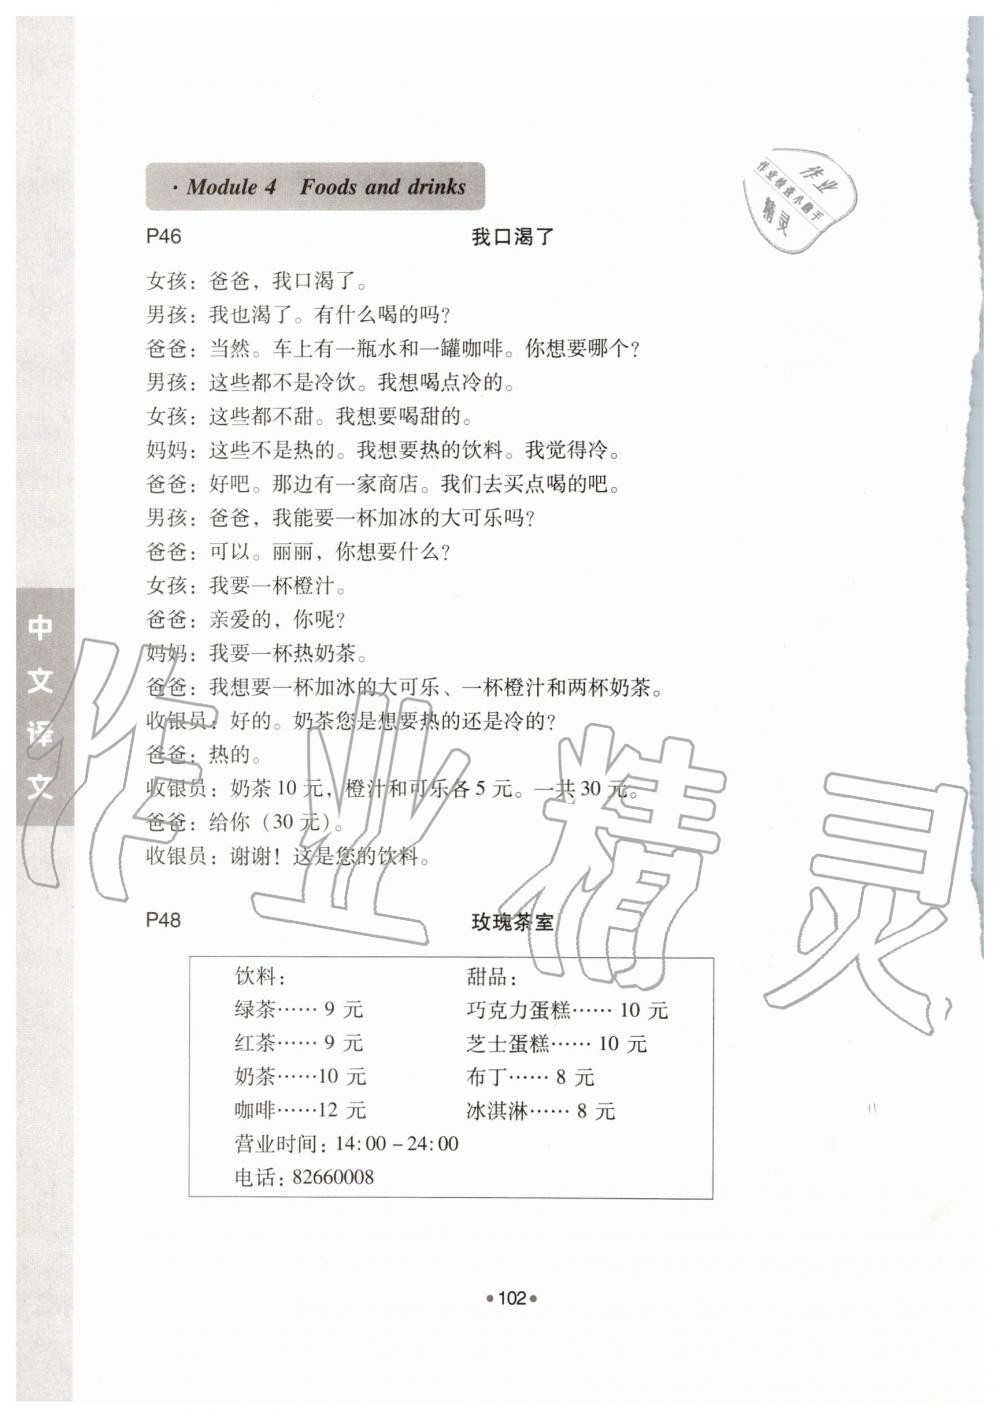 · Module 4 Foods and drinks
作业
作业检查小助手
精灵
P46 我口渴了
女孩：爸爸，我口渴了。
男孩：我也渴了。有什么喝的吗？
爸爸：当然。车上有一瓶水和一罐咖啡。你想要哪个？
男孩：这些都不是冷饮。我想喝点冷的。
女孩：这些都不甜。我想要喝甜的。
妈妈：这些不是热的。我想要热的饮料。我觉得冷。
爸爸：好吧。那边有一家商店。我们去买点喝的吧。
男孩：爸爸，我能要一杯加冰的大可乐吗？
爸爸：可以。丽丽，你想要什么？
女孩：我要一杯橙汁。
爸爸：亲爱的，你呢？
妈妈：我要一杯热奶茶。
爸爸：我想要一杯加冰的大可乐、一杯橙汁和两杯奶茶。
收银员：好的。奶茶您是想要热的还是冷的？
爸爸：热的。
收银员：奶茶 10 元，橙汁和可乐各 5 元。一共 30 元。
爸爸：给你（30 元）。
收银员：谢谢！这是您的饮料。
中文译文
作业精灵
P48 玫瑰茶室
饮料： 甜品：
绿茶…… 9 元 巧克力蛋糕…… 10 元
红茶…… 9 元 芝士蛋糕…… 10 元
奶茶……10 元 布丁…… 8 元
咖啡……12 元 冰淇淋…… 8 元
营业时间：14:00-24:00
电话：82660008
•102•